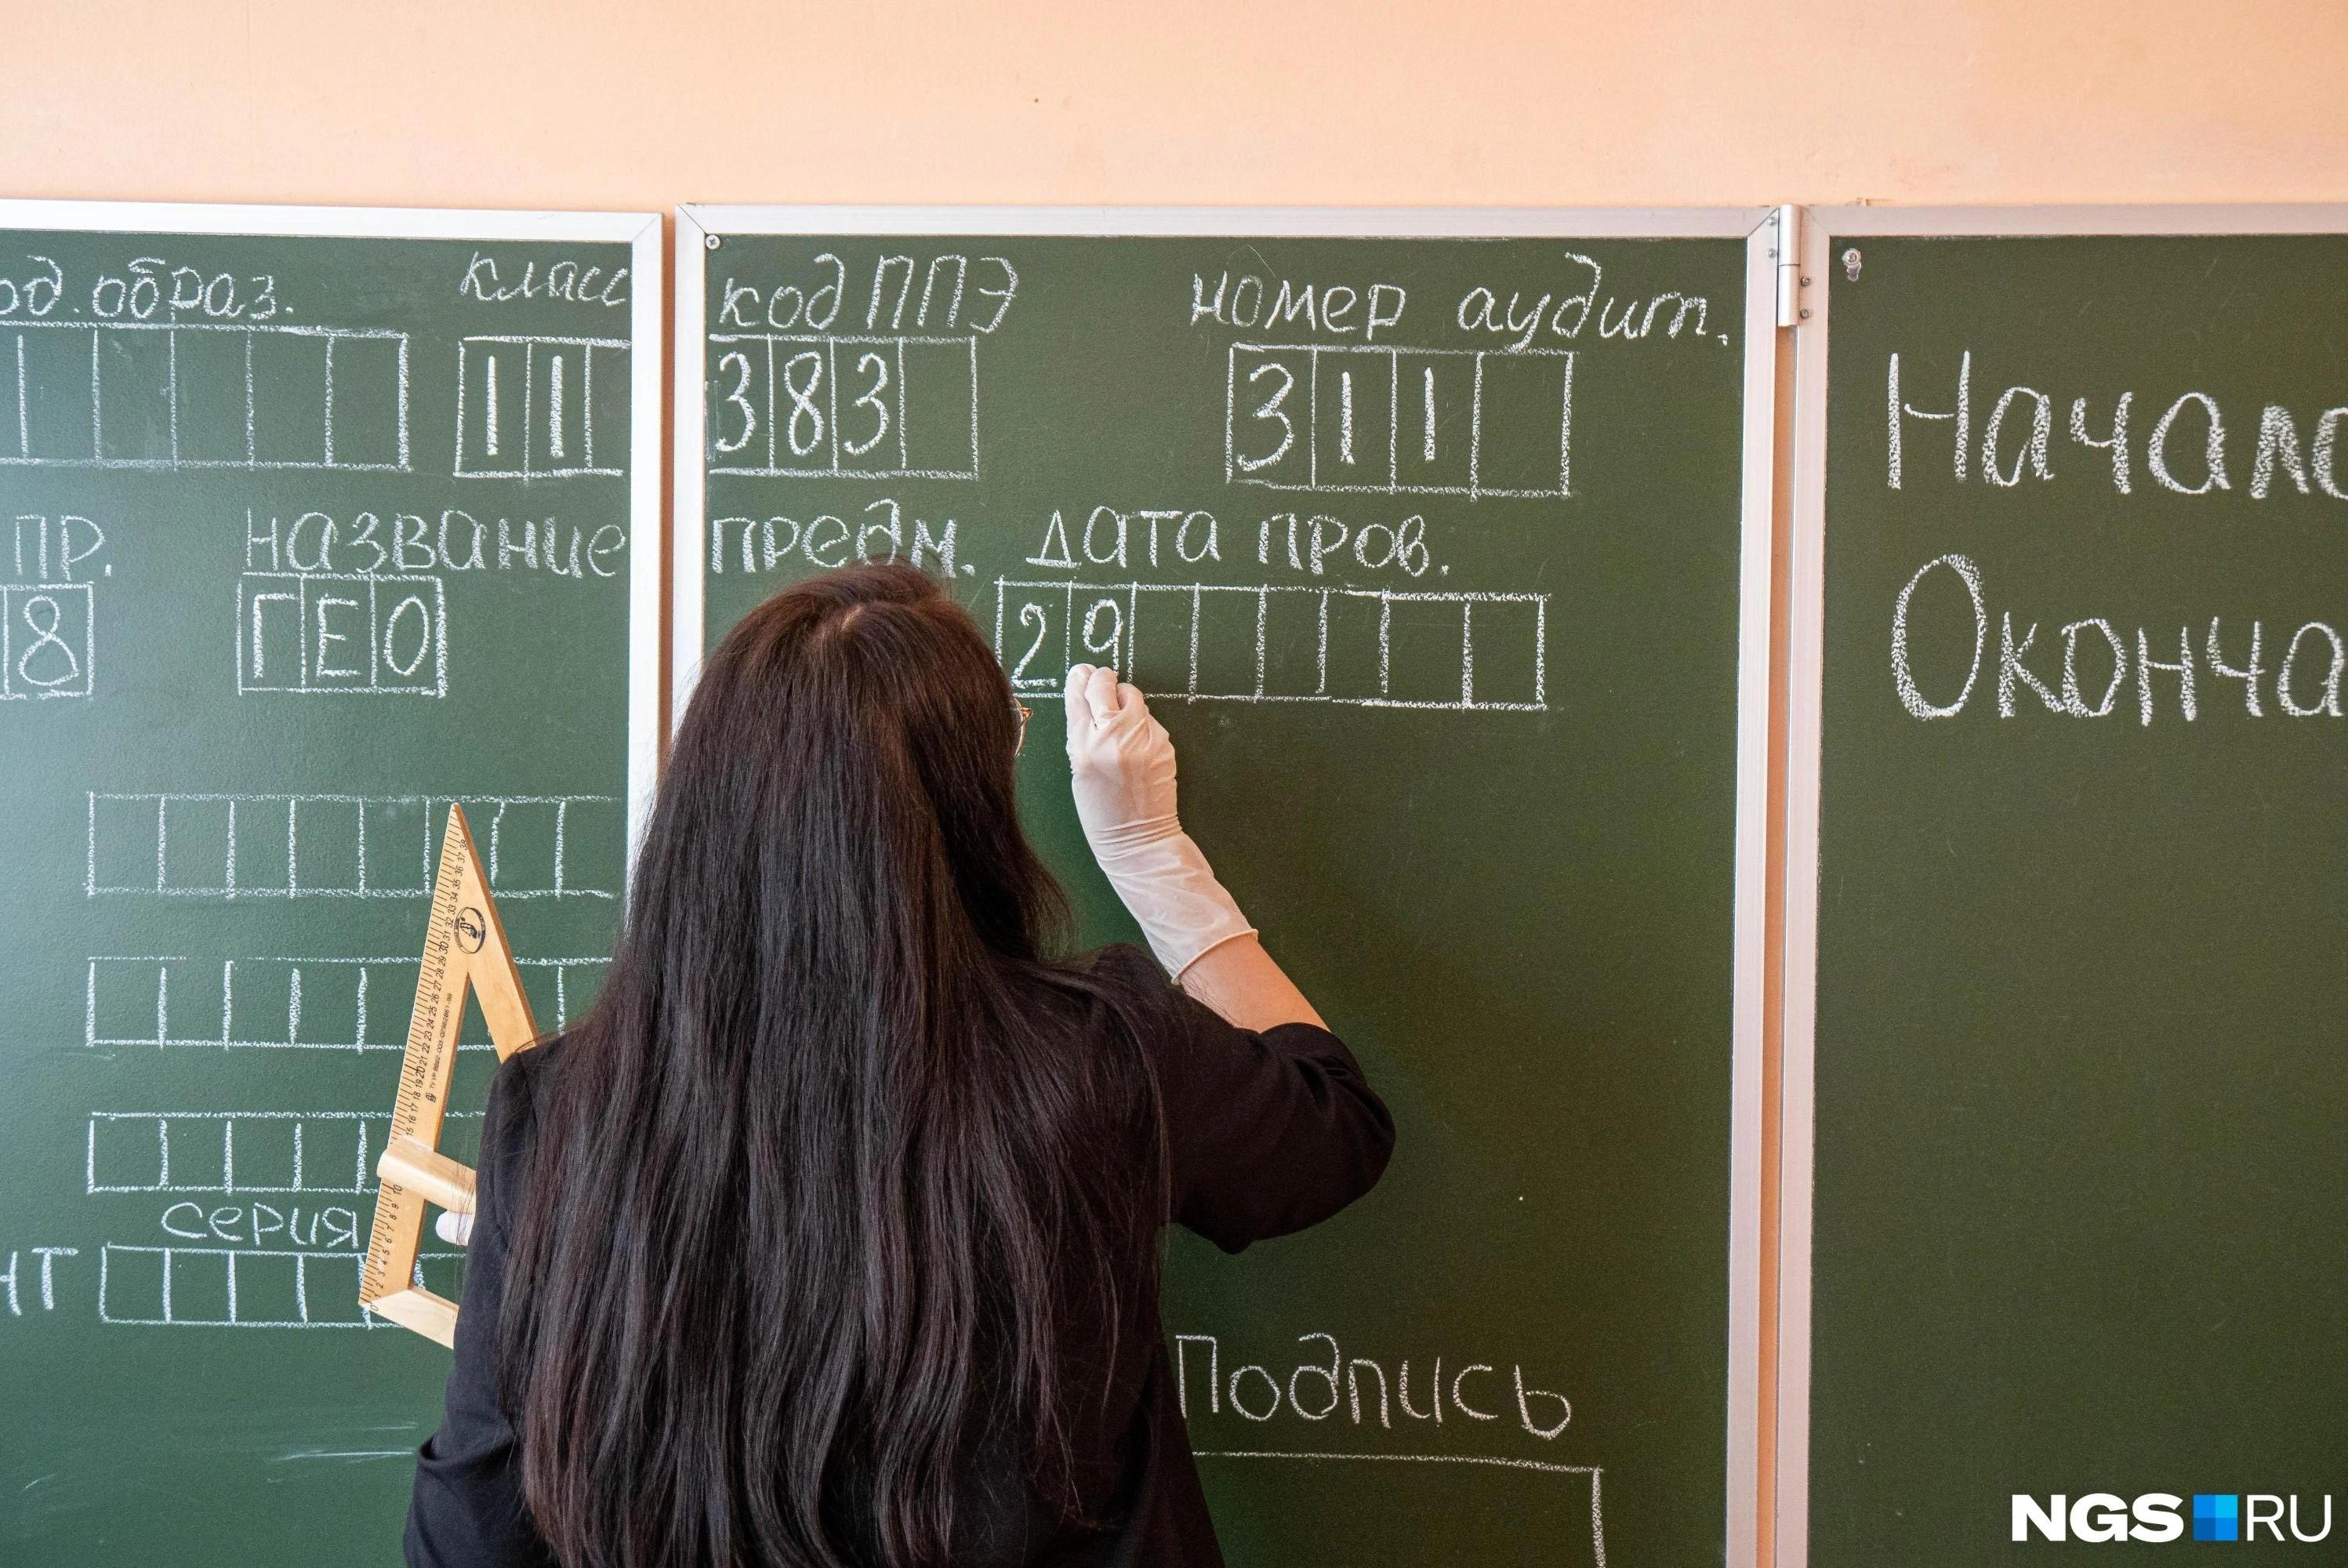 од. образ. класс код ППЭ номер аудит.
11 383 311
Начало
пр. название предм. дата пров.
8 ГЕО 29
Оконча
серия
нт
Подпись
NGS RU